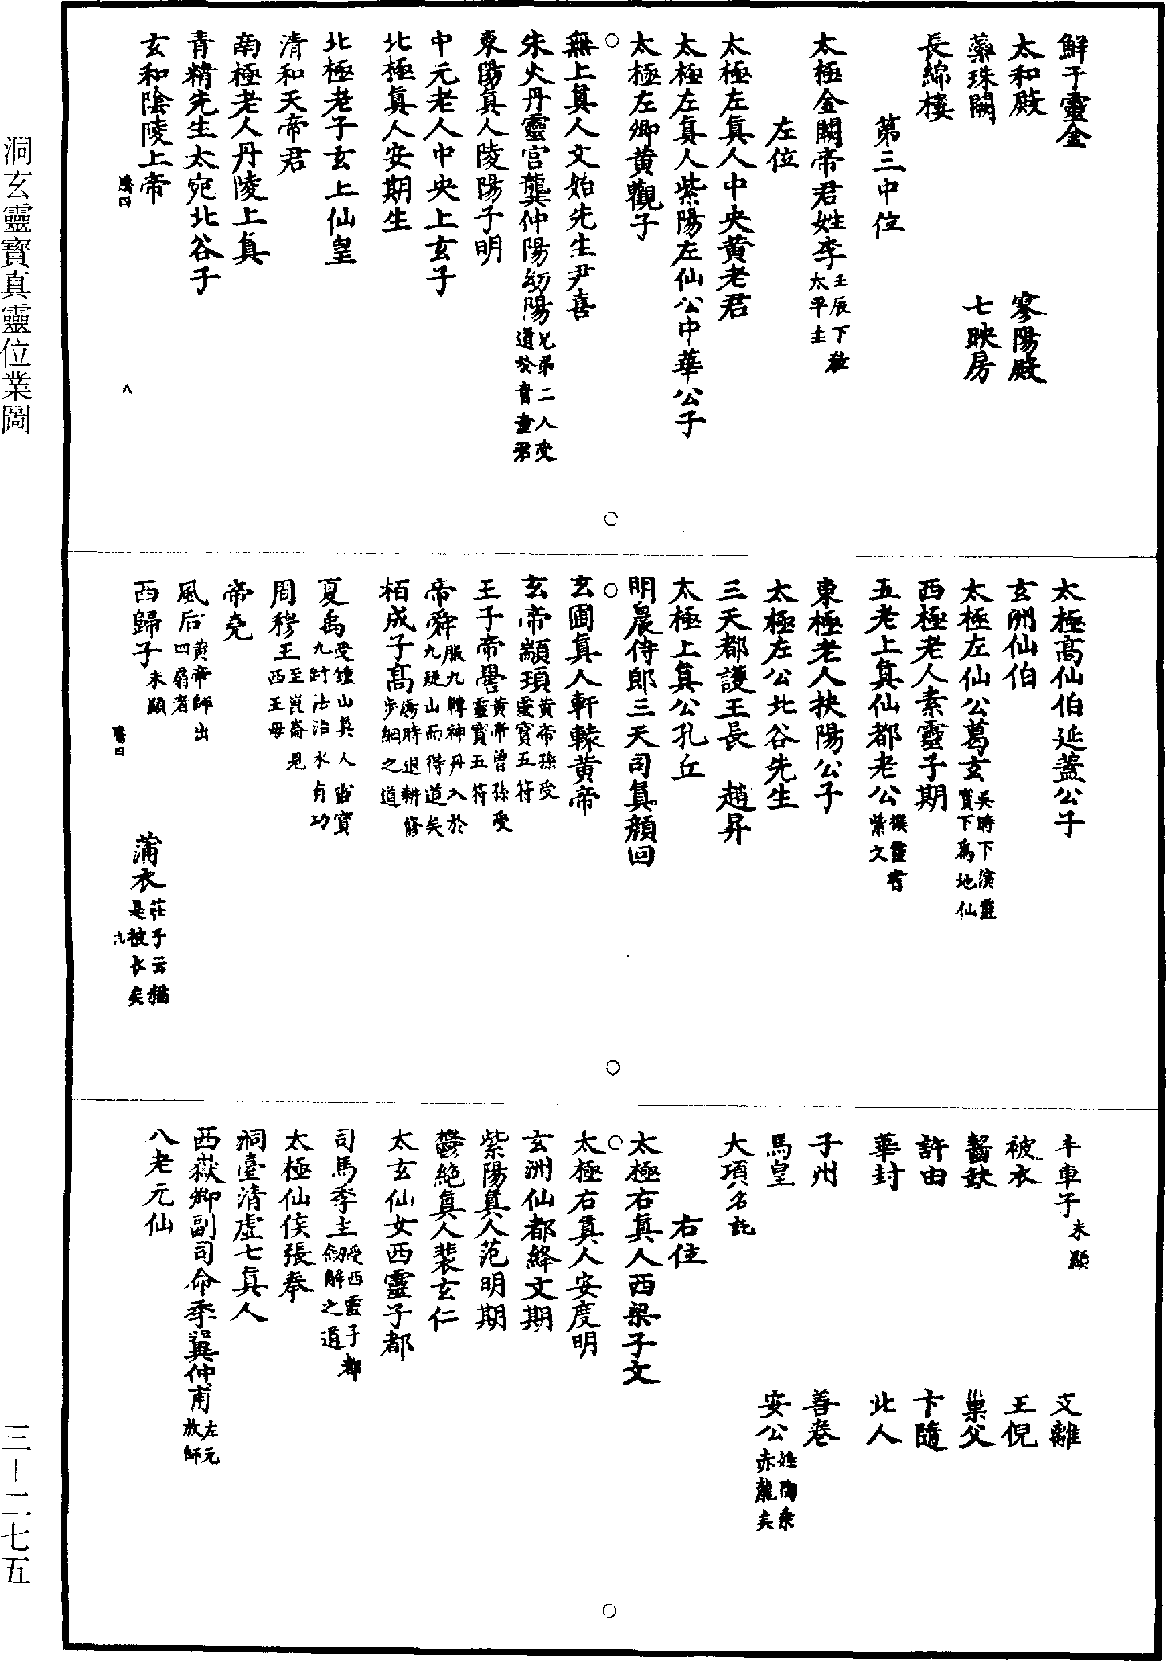 鮮于靈金
太和殿 寥陽殿
蘂珠闕 七映房
長綿樓
第三中位
太極金闕帝君姓李壬辰下教太平主
左位
太極左真人中央黃老君
太極左真人紫陽左仙公中華公子
太極左卿黃觀子
無上真人文始先生尹喜
朱火丹靈宮龔仲陽幼陽兄弟二人受道於青童君
東陽真人陵陽子明
中元老人中央上玄子
北極真人安期生
北極老子玄上仙皇
清和天帝君
南極老人丹陵上真
青精先生太宛北谷子
玄和陰陵上帝
八
太極高仙伯延蓋公子
玄洲仙伯
太極左仙公葛玄吳時下演靈寶下為地仙
西極老人素靈子期
五老上真仙都老公撰靈書紫文
東極老人扶陽公子
太極左公北谷先生
三天都護王長 趙昇
太極上真公孔丘
明晨侍郎三天司真顏回
玄圃真人軒轅黃帝
玄帝顓頊黃帝孫受靈寶五符
王子帝嚳黃帝曾孫受靈寶五符
帝舜服九轉神丹入於九疑山而得道矣
栢成子高湯時退耕修步綱之道
夏禹受鍾山真人靈寶九跡法治水有功
周穆王至崑崙見西王母
帝堯
風后黃帝師出四扇者
西歸子未顯 蒲衣莊子云猶是被衣矣
九
半車子未顯 支離
被衣 王倪
齧缺 巢父
許由 卞隨
華封 北人
子州 善卷
馬皇 安公姓陶乘赤龍矣
大項名託
右位
太極右真人西梁子文
太極右真人安度明
玄洲仙都絳文期
紫陽真人范明期
鬱絕真人裴玄仁
太玄仙女西靈子都
司馬季主受西靈子都劒解之道
太極仙侯張奉
洞臺清虛七真人
西嶽卿副司命季翼仲甫左元放師
八老元仙
洞玄靈寶真靈位業圖
三—二七五